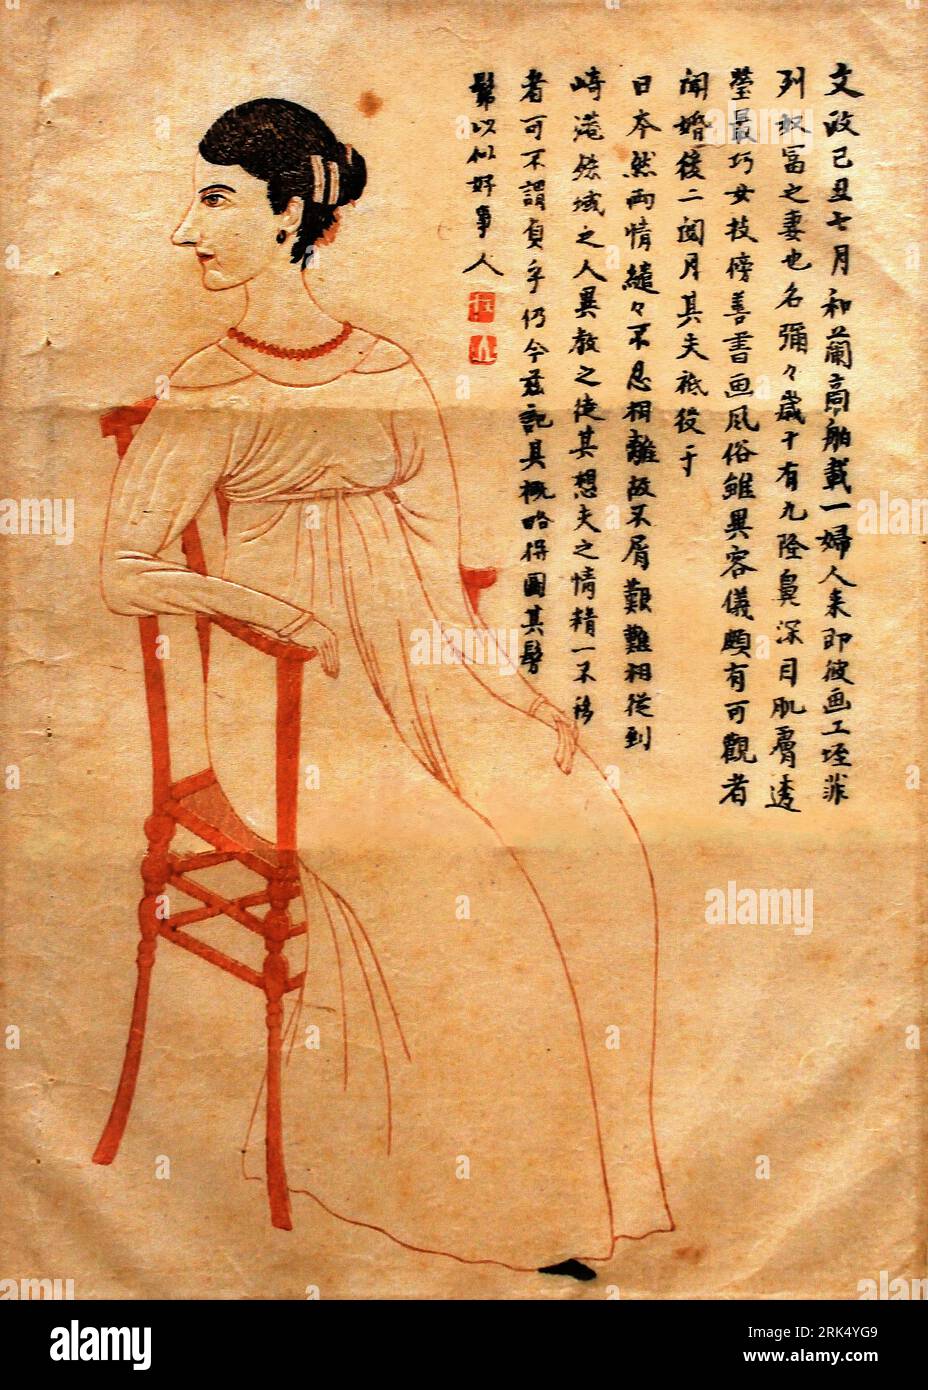 文政己丑七月和蘭商舶載一婦人来即彼画工垤菲
列奴冨之妻也名彌々歳十有九隆鼻深目肌膚透
瑩最巧女技傍善書画風俗雖異容儀頗有可觀者
聞婚後二閲月其夫祗役于
日本然両情繾々不忍相離故不屑艱難相從到
崎港殊域之人異教之徒其想夫之情精一不移
者可不謂貞乎仍今茲記其概略併圖其髣
髴以似好事人
alamy
Image ID: 2RK4YG9
www.alamy.com